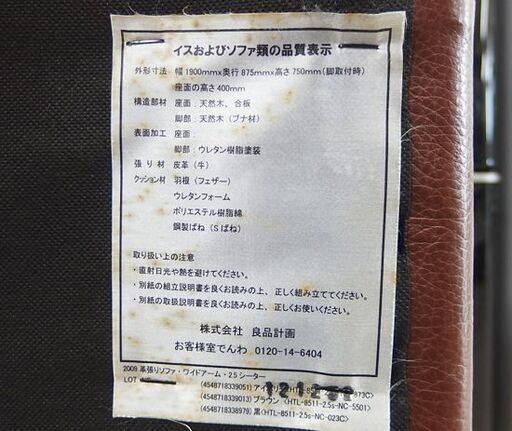 イスおよびソファ類の品質表示
外形寸法：幅1900mm×奥行875mm×高さ750mm（脚取付時）
座面の高さ400mm
構造部材　座面：天然木、合板
脚部：天然木（ブナ材）
表面加工　座面：
脚部：ウレタン樹脂塗装
張り材　皮革（牛）
クッション材　羽根（フェザー）
ウレタンフォーム
ポリエステル樹脂綿
鋼製ばね（Sばね）
取り扱い上の注意
・直射日光や熱を避けてください。
・別紙の組立説明書を良くお読みの上、正しく組み立ててください。
・別紙の取扱説明書を良くお読みの上、正しくお使いください。
株式会社 良品計画
お客様室でんわ 0120-14-6404
2009 革張りソファ・ワイドアーム・2.5シーター
LOT
(4548718339051) アイ (HTL-8511-2.5s-NC-873C)
(4548718339013) ブラウン (HTL-8511-2.5s-NC-5501)
(4548718338979) 黒 (HTL-8511-2.5s-NC-023C)